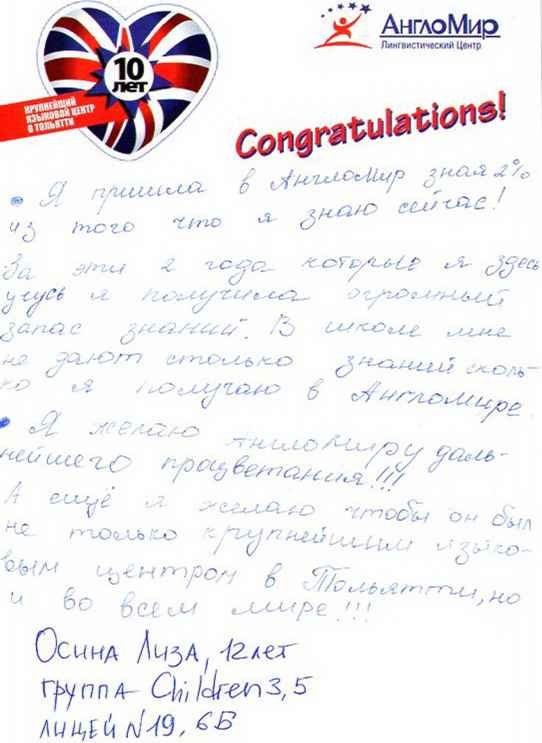 10
ЛЕТ
КРУПНЕЙШИЙ
ЯЗЫКОВОЙ ЦЕНТР
В ТОЛЬЯТТИ
АНГЛОМИР
Лингвистический Центр
Congratulations!
• Я пришла в АнглоМир зная 2%
из того что я знаю сейчас!
За эти 2 года которые я здесь
учусь я получила огромный
запас знаний. В школе мне
не дают столько знаний сколь-
ко я получаю в АнглоМире.
• Я желаю АнглоМиру даль-
нейшего процветания!!!
А ещё я желаю чтобы он был
не только крупнейшим языко-
вым центром в Тольятти, но
и во всем мире!!!
Осина Лиза, 12 лет
группа Children 3,5
лицей N19, 6Б